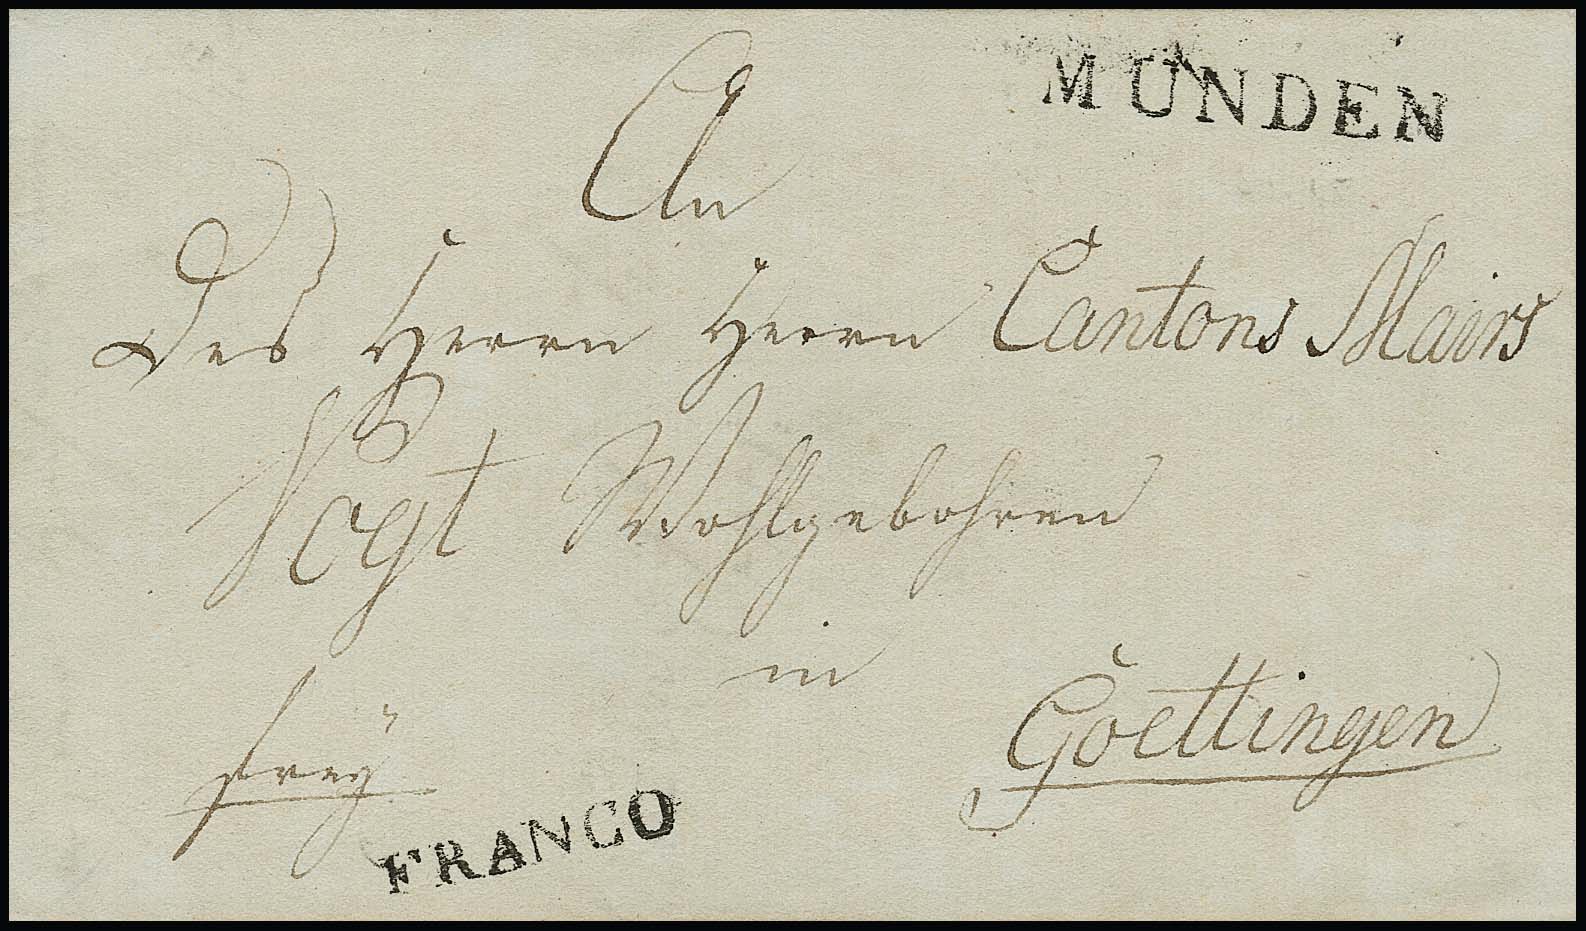 MÜNDEN
An
Des Herrn Herrn Cantons Mairs
Vogt Wohlgebohren
in
Goettingen
frey
FRANCO